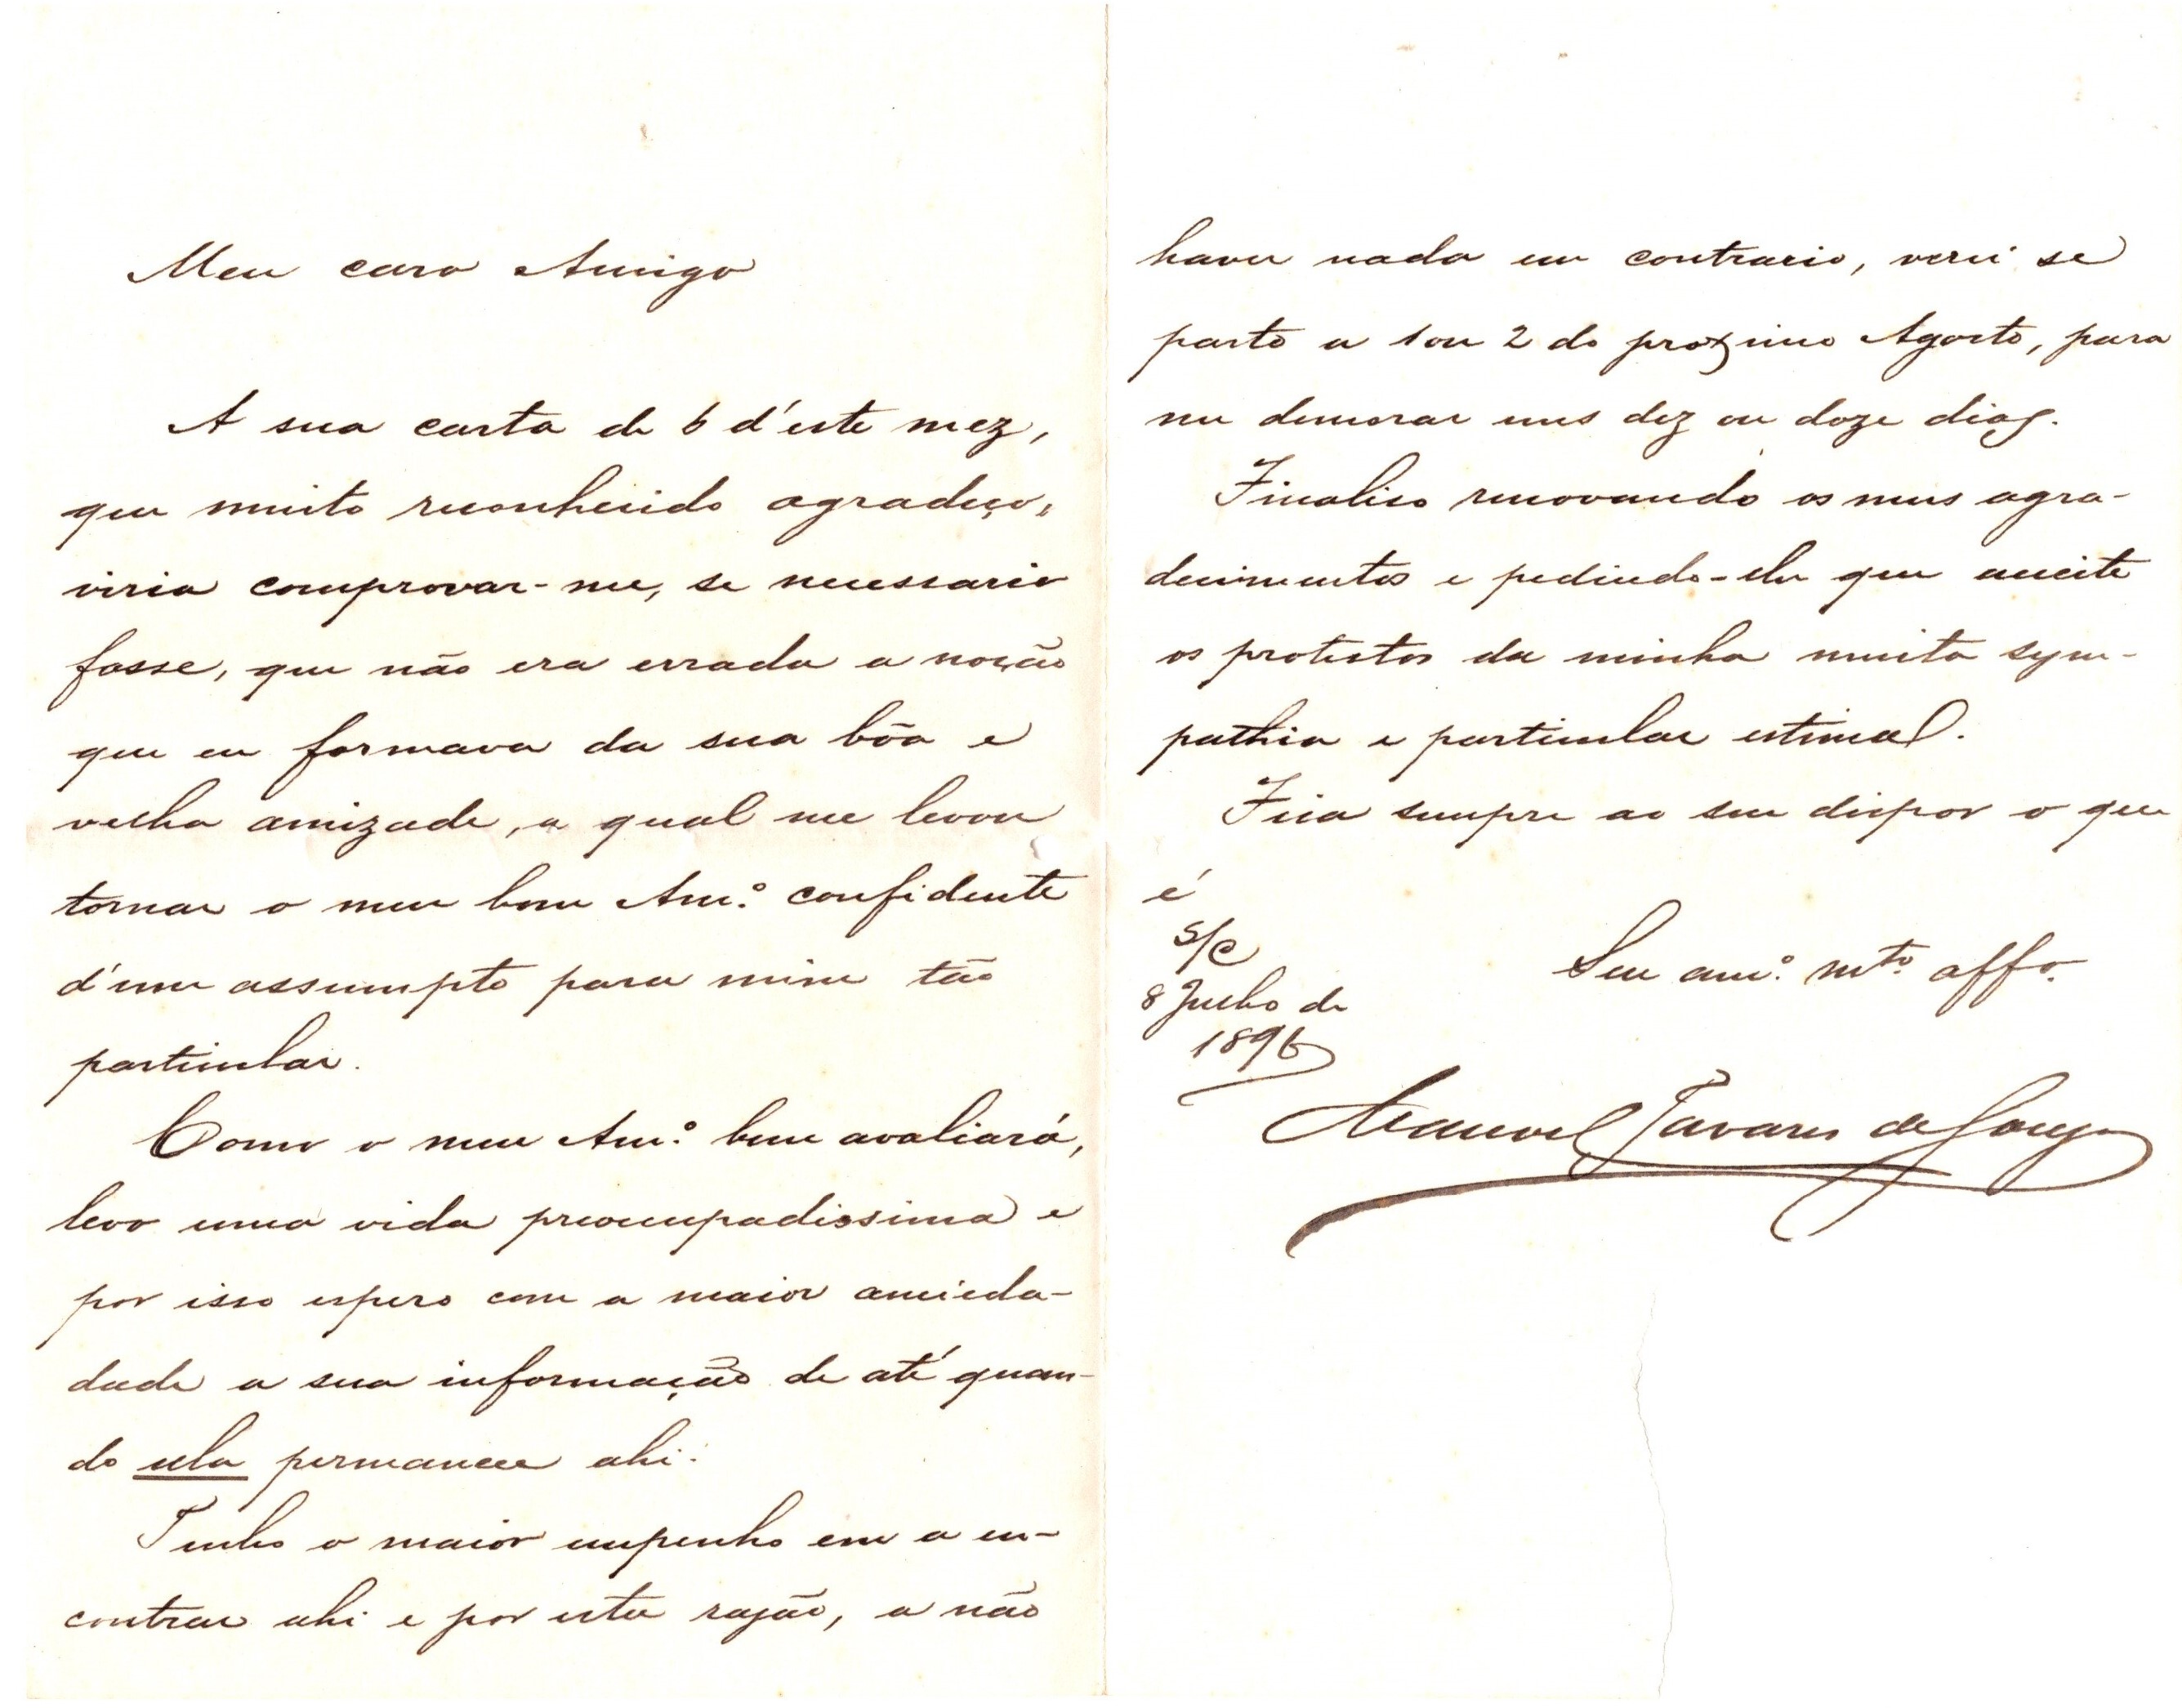 Meu caro Amigo
A sua carta de 6 d'este mez,
que muito reconhecido agradeço,
viria comprovar-me, se necessario
fosse, que não era errada a noção
que eu formava da sua bôa e
velha amizade, a qual me levou
tornar o meu bom Am.º confidente
d'um assumpto para mim tão
particular.
Como o meu Am.º bem avaliará,
levo uma vida preoccupadissima e
por isso espero com a maior ancieda-
dade a sua informação de até quan-
do ella permanece ahi.
Tenho o maior empenho em a en-
contrar ahi e por esta razão, a não
haver nada em contrario, verei se
parto a 1 ou 2 do proximo Agosto, para
me demorar uns dez ou doze dias.
Finaliso renovando os meus agra-
decimentos e pedindo-lhe que acceite
os protestos da minha muita sym-
pathia e particular estima.
Fica sempre ao seu dispor o que
é
S/C
8 Julho de
1896
Seu am.º mt.º aff.º
Manuel Tavares de Souza